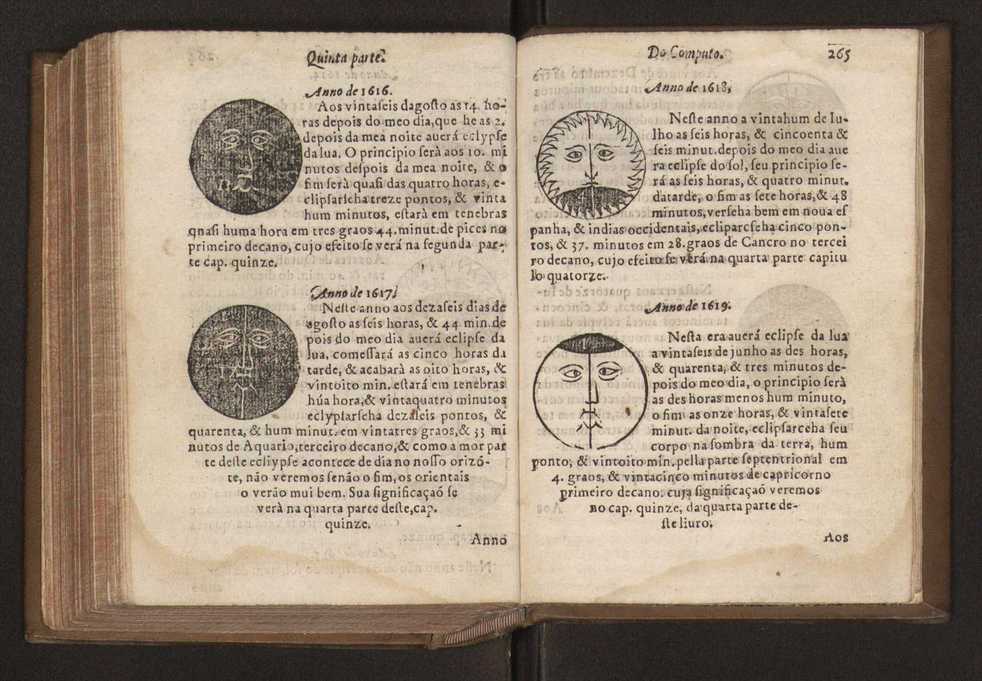 Quinta parte
Anno de 1616.
Aos vintaſeis dagoſto as 14. ho-
ras depois do meo dia, que he as 2.
depois da mea noite auerá eclypſe
da lua. O principio ſerà aos 10. mi
nutos deſpois da mea noite, & o
fim ſerà quaſi das quatro horas, e-
clipſarſeha treze pontos, & vinta
hum minutos, eſtarà em tenebras
quaſi huma hora em tres graos 44. minut. de pices no
primeiro decano, cujo efeito ſe verá na ſegunda par-
te cap. quinze.
Anno de 1617.
Neſte anno aos dezaſeis dias de
agoſto as ſeis horas, & 44 min. de
pois do meo dia auerá eclipſe da
lua, comeſſará as cinco horas da
tarde, & acabarà as oito horas, &
vintoito min. eſtará em tenebras
húa hora, & vintaquatro minutos
eclypſarſeha dezaſeis pontos, &
quarenta, & hum minut. em vintatres graos, & 33 mi
nutos de Aquario, terceiro decano, & como a mor par
te deſte eclypſe acontece de dia no noſſo orizó-
te, não veremos ſenão o fim, os orientais
o verão mui bem. Sua ſignificaçaó ſe
verà na quarta parte deſte, cap.
quinze.
Anno
Do Computo. 265
Anno de 1618,
Neſte anno a vintahum de Iu-
lho as ſeis horas, & cincoenta &
ſeis minut. depois do meo dia aue
ra eclipſe do ſol, ſeu principio ſe-
rá as ſeis horas, & quatro minut.
datarde, o fim as ſete horas, & 48
minutos, verſeha bem em noua eſ
panha, & indias occidentais, ecliparſeha cinco pon-
tos, & 37. minutos em 28. graos de Cancro no tercei
ro decano, cujo efeito ſe verá na quarta parte capitu
lo quatorze.
Anno de 1619.
Neſta era auerá eclipſe da lua
a vintaſeis de junho as des horas,
& quarenta, & tres minutos de-
pois do meo dia, o principio ſerà
as des horas menos hum minuto,
o fim as onze horas, & vintaſete
minut. da noite, eclipſarceha ſeu
corpo na ſombra da terra, hum
ponto, & vintoito min. pella parte ſeptentrional em
4. graos, & vintacinco minutos de capricorno
primeiro decano. cuja ſignificaçaó veremos
no cap. quinze, da quarta parte de-
ſte liuro.
Aos